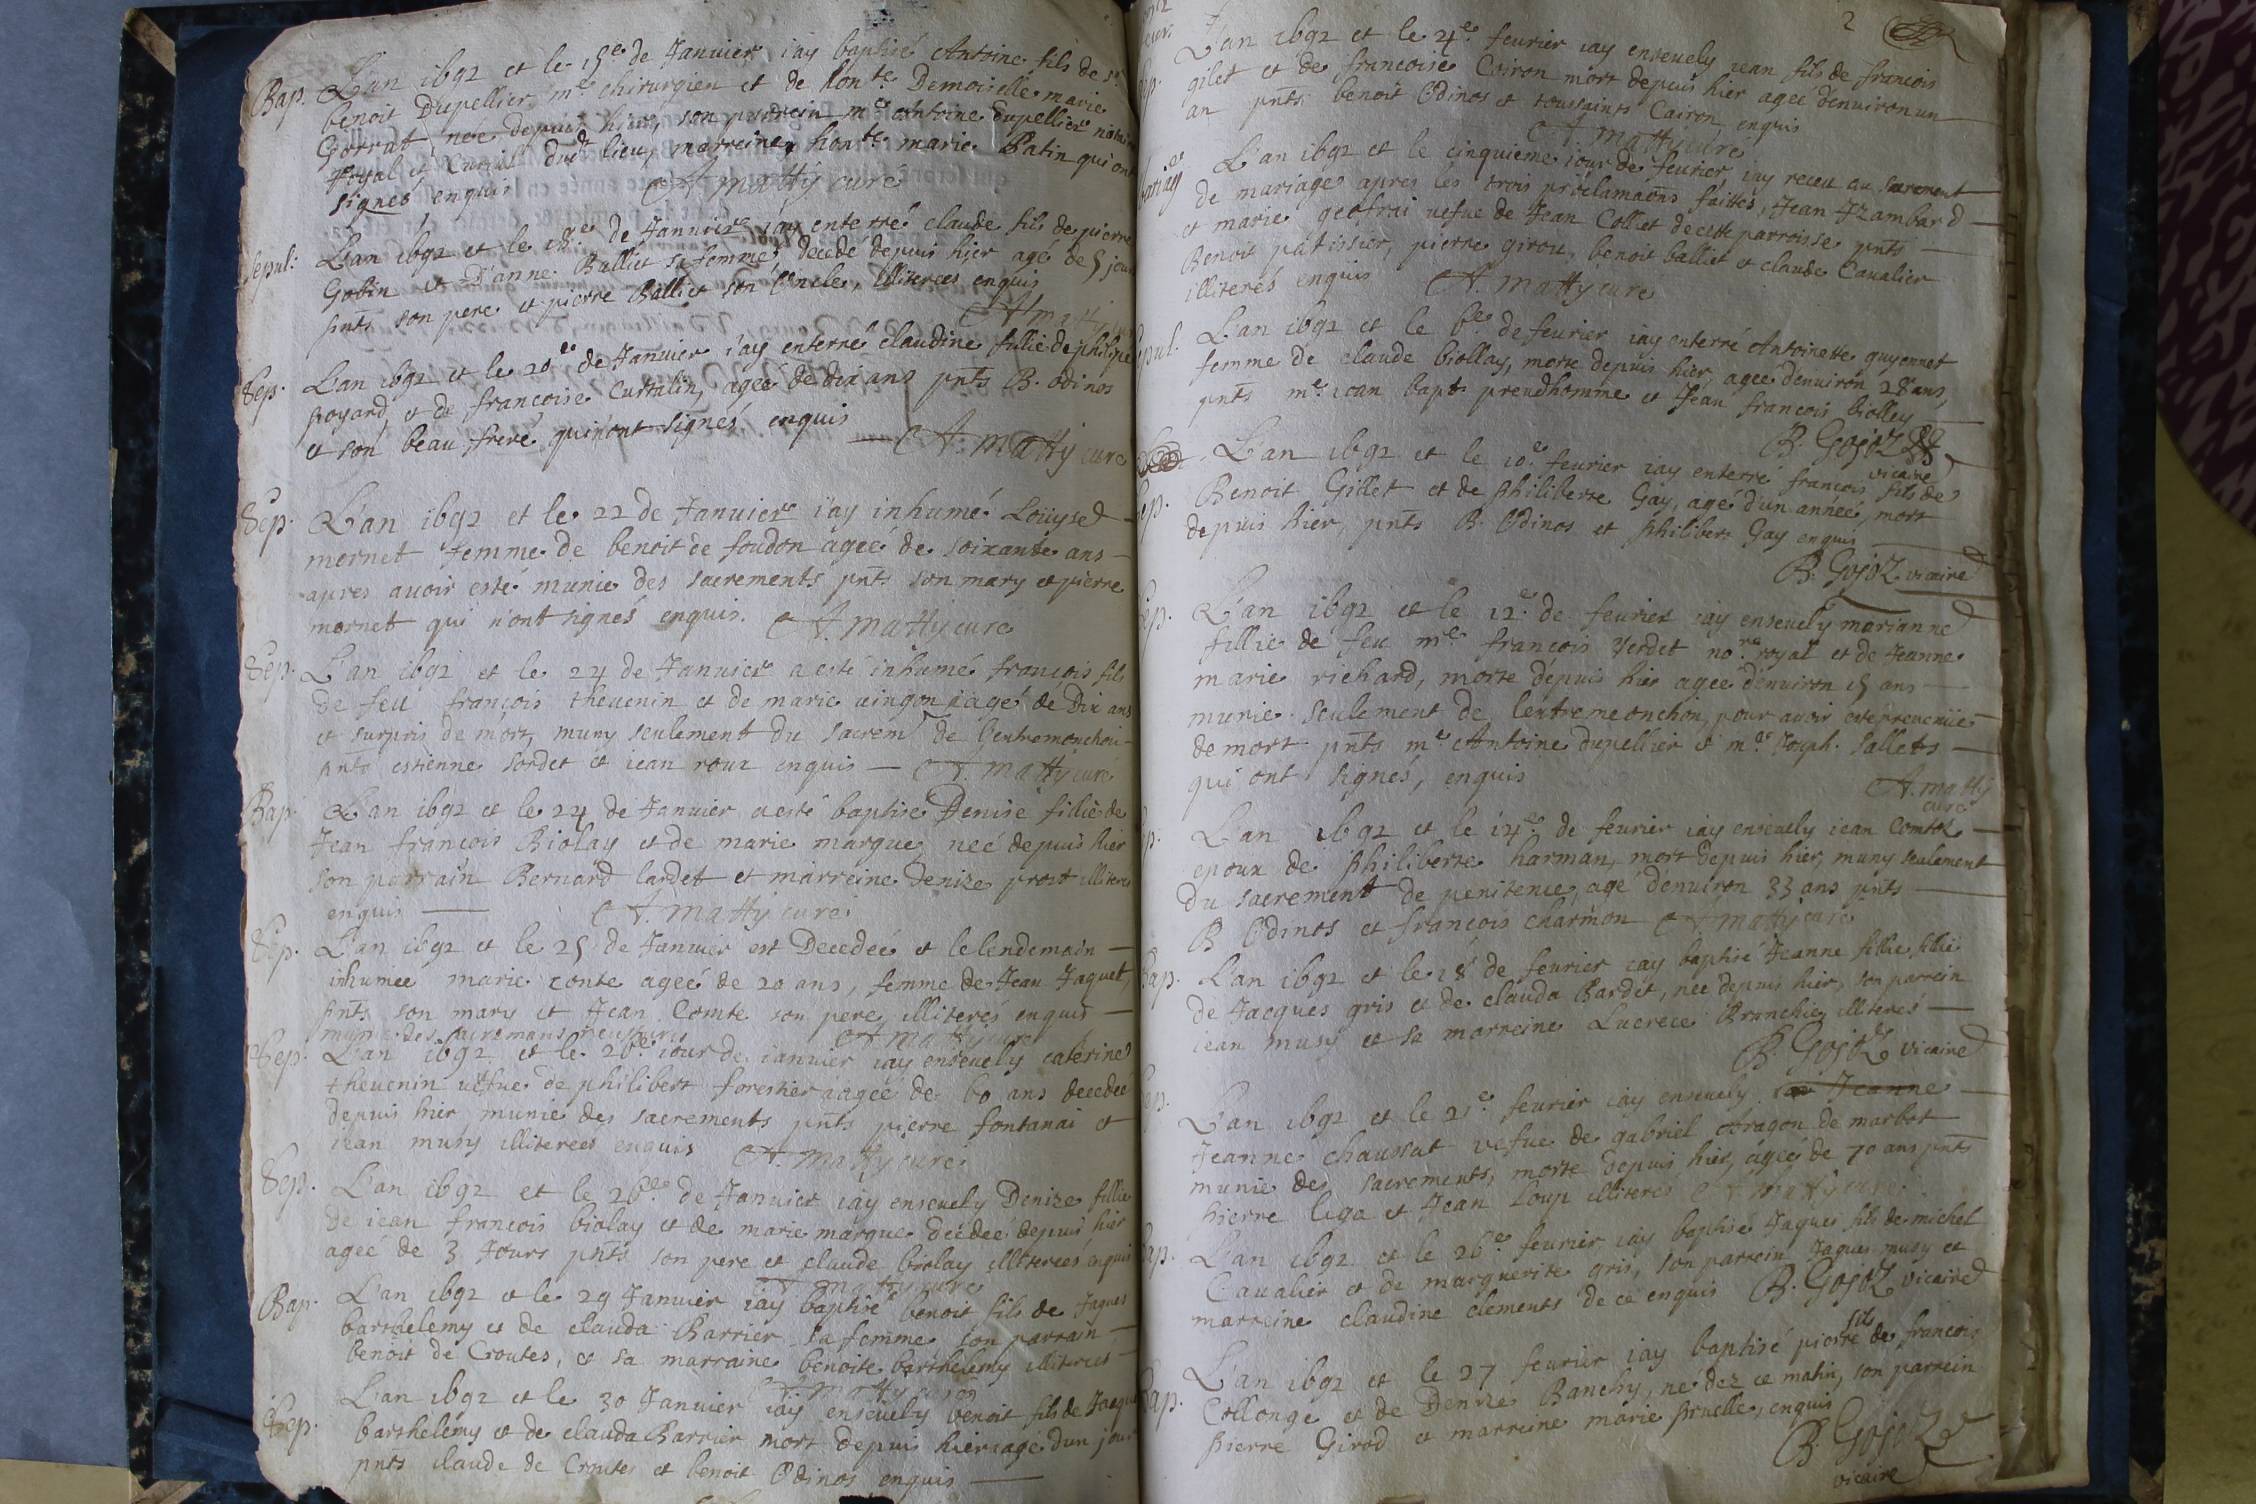 Bap. L'an 1692 et le 15e de Januier iay baptisé Antoine fils de sr
benoit Dupellier me chirurgien et de honte Demoiselle marie
Gorrat, née depuis hier, son parrein me Antoine dupellier notaire
Royal et Curial dudt lieu, marreine honte marie Patin qui ont
signes enquis A. Matty curé
Sepul: L'an 1692 et le 18e de Januier iay enterré claude fils de pierre
Gobin et D'anne Balliet sa femme decedé depuis hier agé de 5 jours
pnts son pere et pierre Balliet son Oncle, illiterees enquis
A Matty curé
Sep. L'an 1692 et le 20e de Januier i'ay enterré claudine fillie de philipe
poyard, et de francoise Curtalin, ageé de dix ans pnts B. odinos
et son beau frere qui n'ont signés enquis
A. Matty curé
Sep. L'an 1692 et le 22 de Januier i'ay inhumé Loüyse
mornet femme de benoit de foudon ageé de soixante ans
apres auoir esté munie des sacrements pnts son mary et pierre
mornet qui n'ont signés enquis. A. Matty curé
Sep. L'an 1692 et le 24 de Januier a esté inhumé françois fils
de feu françois theuenin et de marie uingon agé de Dix ans
et surpris de mort, muny seulement du sacremt de l'entremonction
pnts estienne sordet et iean roux enquis A. Matty curé
Bap. L'an 1692 et le 24 de Januier a esté baptisé Denise fillie de
Jean françois Biolay et de marie marque, neé depuis hier
son parrain Bernard lardet et marreine denize prost illiteres
enquis A. Matty curé
Sep. L'an 1692 et le 25 de Januier est Decedeé et le lendemain
inhumee marie conte ageé de 20 ans, femme de Jean Jaquet,
pnts son mary et Jean Comte son pere, illiterés enquis
munie des sacremans A Matty curé
Sep. L'an 1692 et le 26e iour de ianuier iay enseuely caterine
theuenin uefue de philibert forestier ageé de 60 ans decedeé
depuis hier munie des sacrements pnts pierre fontanai et
iean musy illiterees enquis A. Matty curé
Sep. L'an 1692 et le 26e de Januier iay enseuely Denize fillie
de iean francois biolay et de marie marque décdeé depuis hier
ageé de 3 Jours pnts son pere et claude biolay illiterees enquis
A Matty curé
Bap. L'an 1692 et le 29 Januier iay baptisé benoit fils de Jaques
barthelemy et de clauda Barrier sa femme son parrain
benoit de Croutes, et sa marraine benoite barthelemy illiterees
A Matty curé
Sep. L'an 1692 et le 30 Januier iay enseuely benoit fils de Jaques
barthelemy et de clauda Barrier mort depuis hier agé d'un jour
pnts claude de Croutes et benoit Odinos enquis
2
Sep. L'an 1692 et le 4e feurier iay enseuely iean fils de francois
gilet et de francoise Coiron mort depuis hier ageé d'enuiron un
an pnts benoit Odinos et toussaints Cairon enquis
A Matty curé
Mariage L'an 1692 et le cinquieme iour de feurier iay receu au sacrement
de mariage apres les trois proclamaons faittes, Jean Izambard
et marie geofrai uefue de Jean Colliet de cette parroisse pnts
Benoit patissier, pierre girou, benoit balliet et claude Caualier
illiterés enquis A. Matty curé
Sepul. L'an 1692 et le 6e de feurier iay enterré Antoinette guyennet
femme de claude biollay, morte depuis hier, ageé d'enuiron 28 ans,
pnts me iean bapt preudhomme et Jean francois biolley
B. Gojoz
vicaire
Sep. L'an 1692 et le 10e feurier iay enterré francois fils de
Benoit Gillet et de philiberte Gay, agé d'un année, mort
depuis hier, pnts B. Odinos et philibert Gay enquis
B. Gojoz vicaire
Sep. L'an 1692 et le 12e de feurier iay enseuely marianne
fillie de feu me françois Verdet nore royal et de Jeanne
marie richard, morte depuis hier ageé d'enuiron 15 ans
munie seulement de lentremeonction, pour auoir esté preuenüe
de mort pnts me Antoine dupellier et me Joseph Sallets
qui ont signés, enquis
A. Matty
curé
Sep. L'an 1692 et le 14e de feurier iay enseuely iean Comtet
epoux de philiberte harman, mort depuis hier, muny seulement
du sacrement de penitence, agé d'enuiron 33 ans pnts
B Odinos et françois charmon A Matty curé
Bap. L'an 1692 et le 18 de feurier iay baptisé Jeanne fillie fillie
de Jacques gris et de clauda Bardet, neé depuis hier, son parrein
iean musy et sa marreine Lucrece Branchie illiteres
B. Gojoz vicaire
Sep. L'an 1692 et le 21e feurier iay enseuely Jeanne
Jeanne chaussat vefue de gabriel Aragon de marbot
munie des sacrements, morte depuis hier, ageé de 70 ans pnts
pierre liga et Jean Loup illiteres A Matty curé
Bap. L'an 1692 et le 26e feurier iay baptisé Jaques fils de michel
Caualier et de marguerite gris, son parrein Jaques musy et
marreine claudine clements de ce enquis B. Gojoz vicaire
Bap. L'an 1692 et le 27 feurier iay baptisé pierre fils de francois
Collonge et de Denize Banchy, né dez ce matin, son parrein
pierre Girod et marreine marie pruelle, enquis
B. Gojoz
vicaire